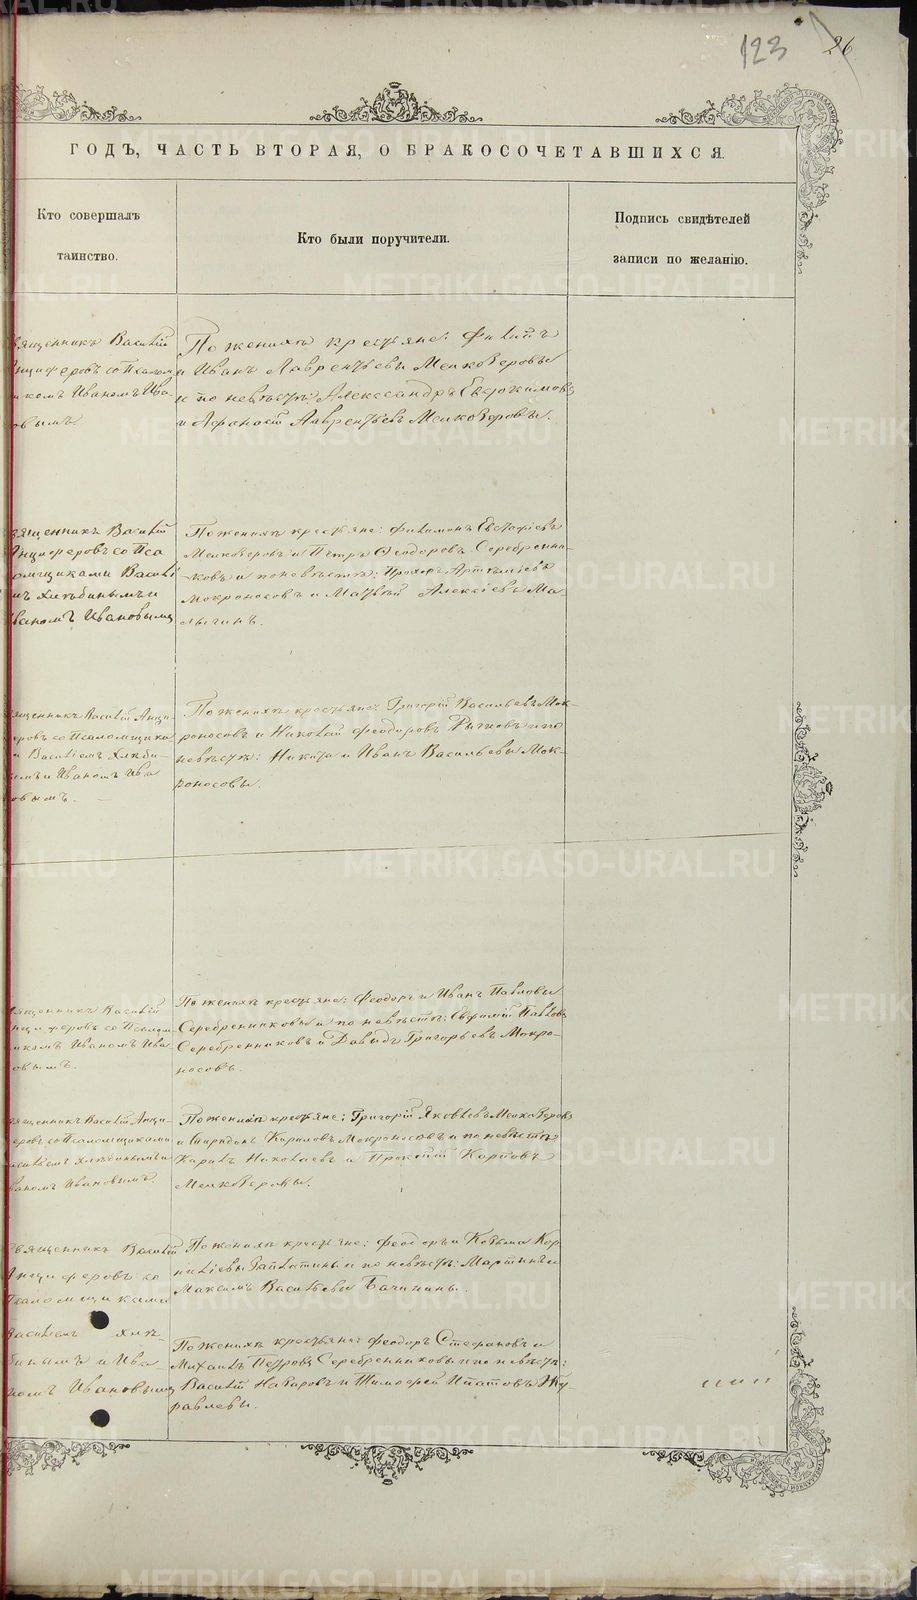 123 26
ГОДЪ, ЧАСТЬ ВТОРАЯ, О БРАКОСОЧЕТАВШИХСЯ.
Кто совершалъ
таинство.
Кто были поручители.
Подпись свидѣтелей
записи по желанію.
вященникъ Василій
нциферовъ со Псалом
икомъ Иваномъ Ива-
овымъ
По женихѣ крестьяне: Филипъ
и Иванъ Лаврентьевы Мелкозеровы
и по невѣстѣ Александръ Евдокимовъ
и Афанасій Лаврентьевъ Мелкозеровы.
вященникъ Василій
Анциферовъ со Пса
омщиками Василі
мъ Хлѣбинымъ и
Иваномъ Ивановымъ
По женихѣ крестьяне: Филимонъ Евстафіевъ
Мелкозеровъ и Петръ Ѳеодоровъ Серебренни-
ковъ и по невѣстѣ: Прохоръ Артеміевъ
Мокроносовъ и Матвѣй Алексіевъ Ма
лыгинъ.
вященникъ Василій Анци-
еровъ со Псаломщика
и Василіемъ Хлѣби-
ымъ и Иваномъ Ива
овымъ.
По женихѣ крестьяне Григорій Васильевъ Мок-
роносовъ и Николай Феодоровъ Рычковъ и по
невѣстѣ: Никита и Иванъ Васильевы Мок-
роносовы.
вященникъ Василій
нциферовъ со Псалом
икомъ Иваномъ Ива
овымъ.
По женихѣ крестьяне: Феодоръ и Иванъ Павловы
Серебренниковы и по невѣстѣ: Евфимій Павловъ
Серебренниковъ и Давыдъ Григорьевъ Мокро-
носовъ.
вященникъ Василій Анци
еровъ со Псаломщиками
асиліемъ Хлѣбинымъ и
ваномъ Ивановымъ.
По женихѣ крестьяне: Григорій Яковлевъ Мелкозеровъ
и Спиридонъ Кириловъ Мокроносовъ и по невѣстѣ
Кирилъ Николаевъ и Прокопій Карповъ
Мелкозеровы.
вященникъ Василій
Анциферовъ со
Псаломщиками
Василіемъ Хлѣ-
бинымъ и Ива-
номъ Ивановымъ
По женихѣ крестьяне: Феодоръ и Козьма Кор
ниліевы Заплатины и по невѣстѣ: Мартинъ и
Максимъ Васильевы Бачинины.
По женихѣ крестьяне: Феодоръ Стефановъ и
Михаилъ Петровъ Серебренниковы и по невѣстѣ:
Василій Назаровъ и Тимофей Ипатовъ Жу
равлевы.
METRIKI.GASO-URAL.RU